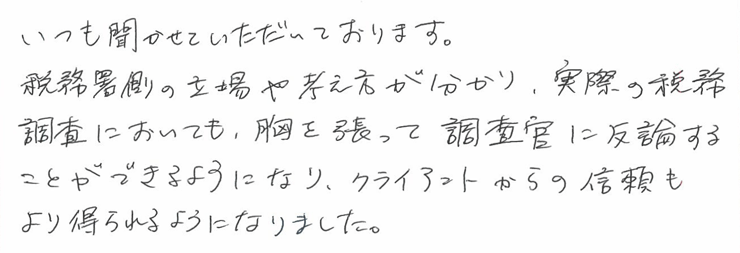 いつも聞かせていただいております。
税務署側の立場や考え方が分かり、実際の税務
調査においても、胸を張って調査官に反論する
ことができるようになり、クライアントからの信頼も
より得られるようになりました。